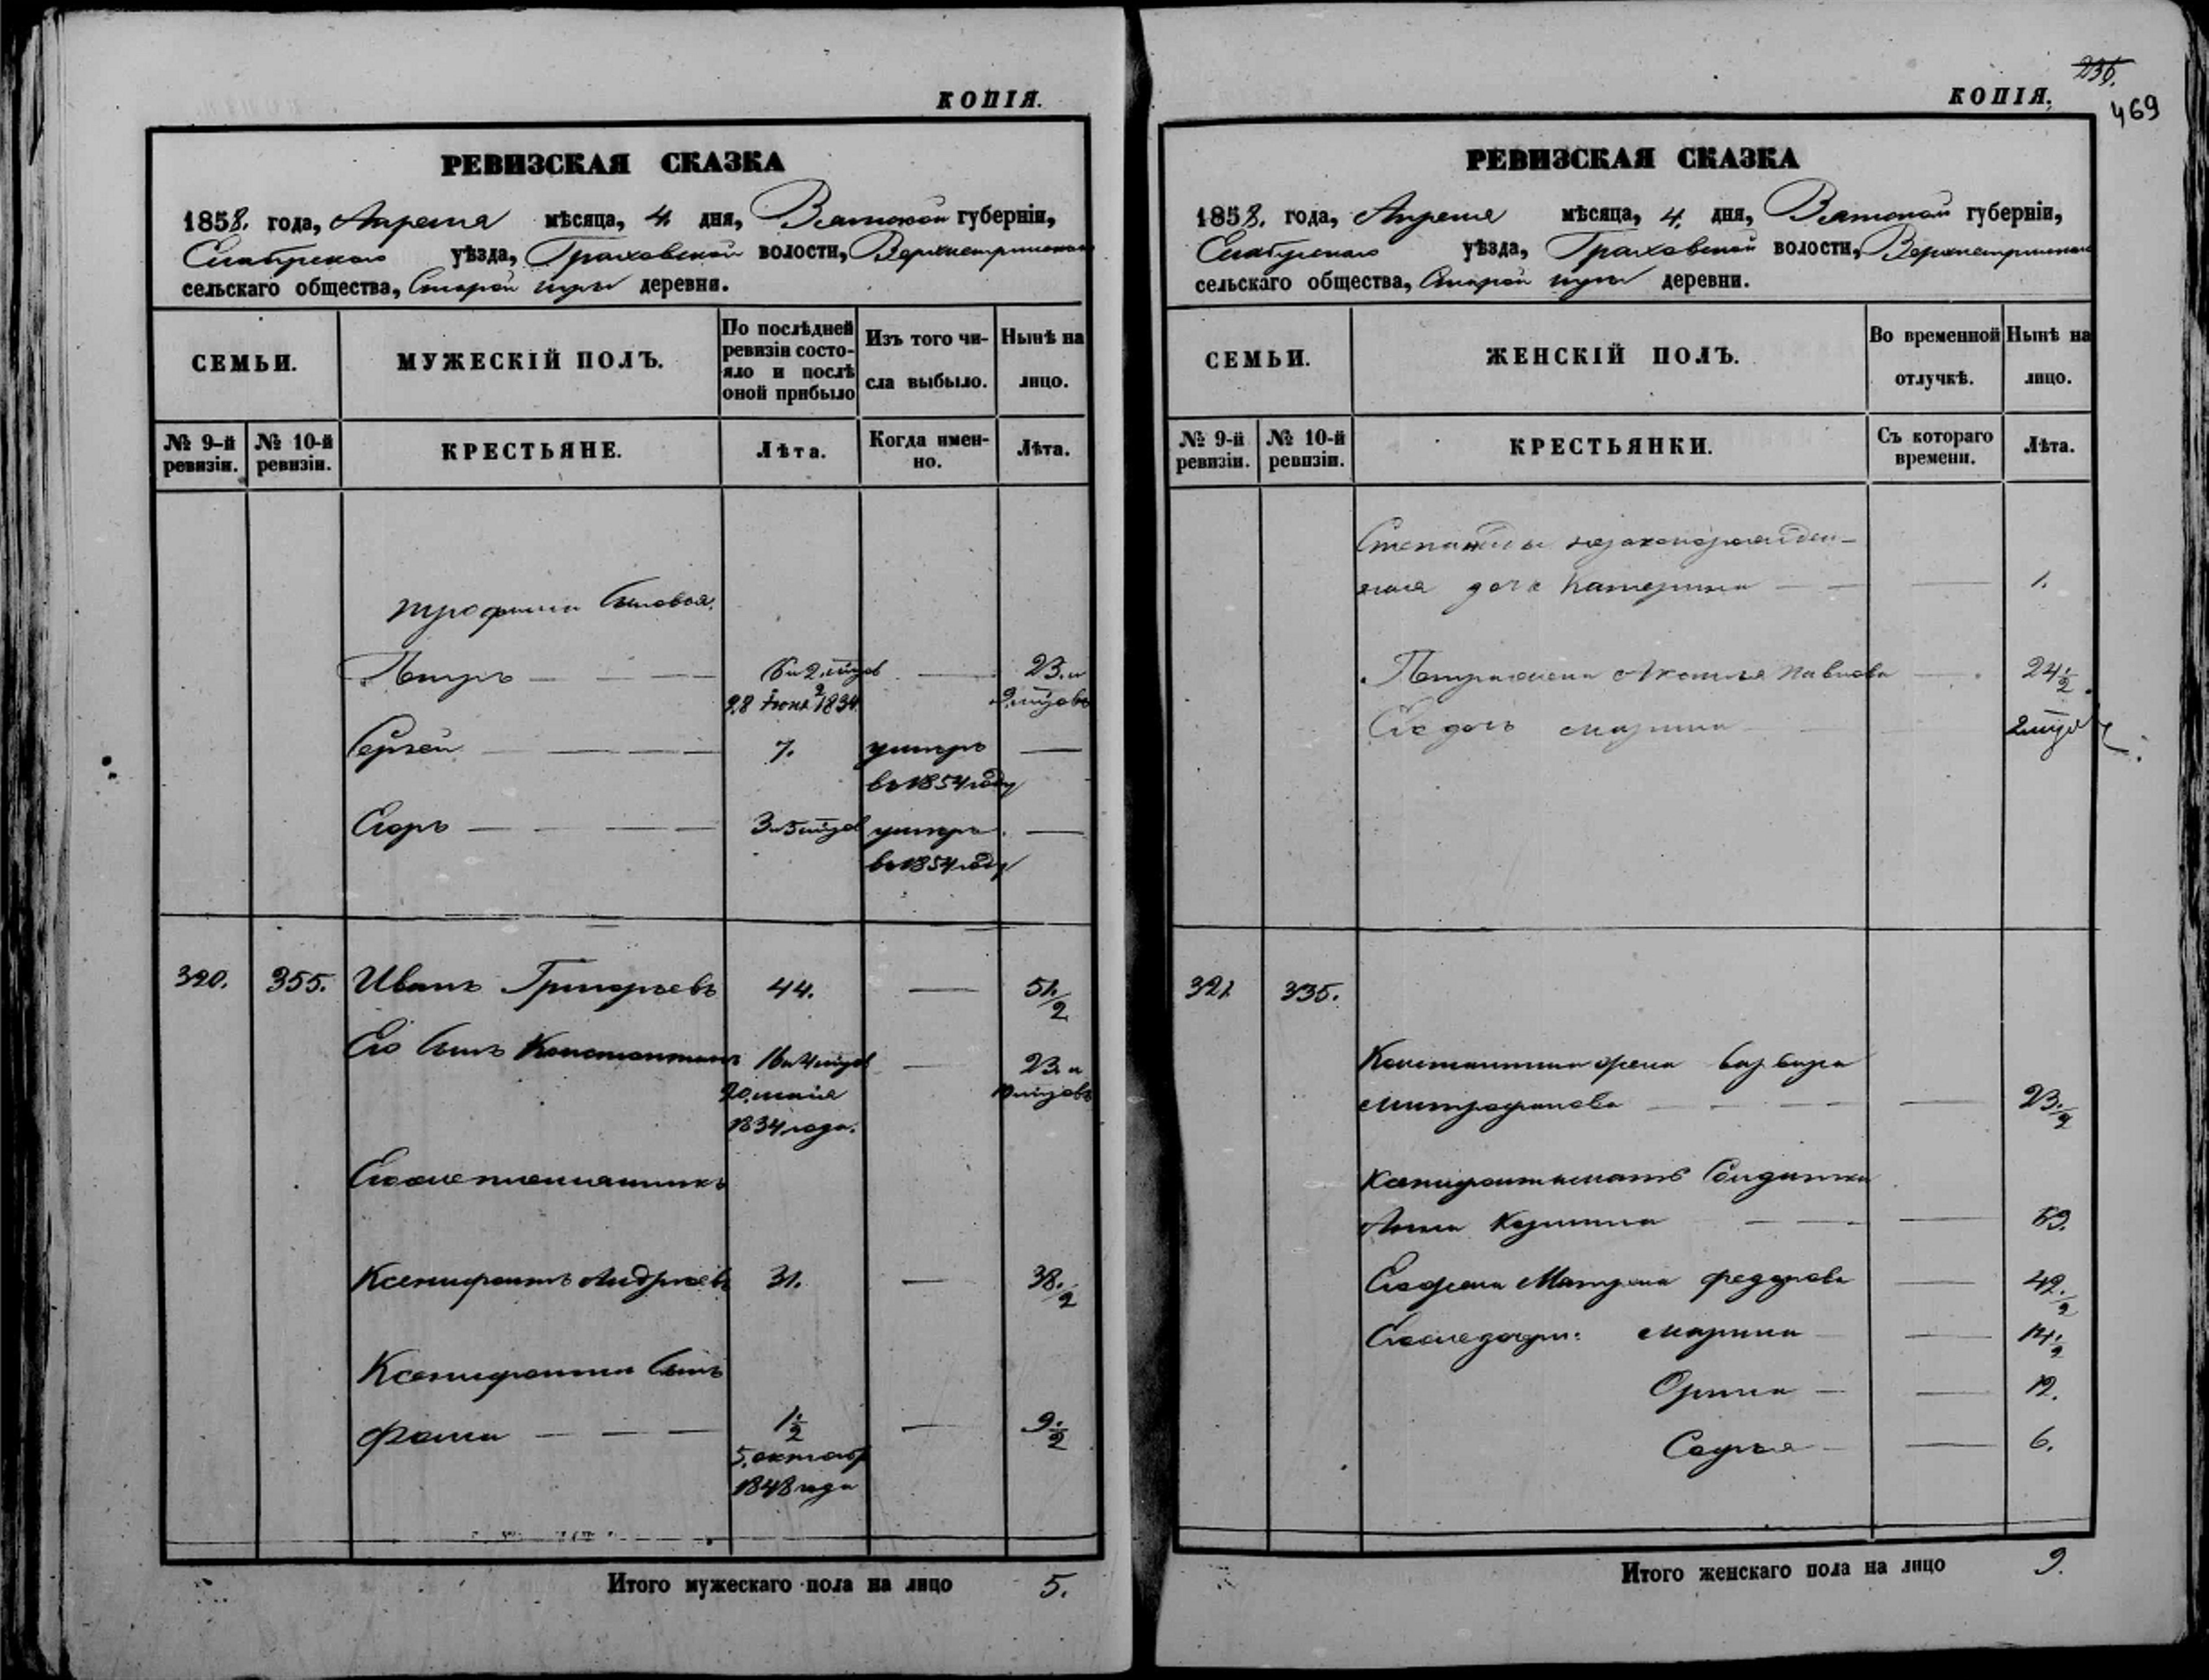 КОПІЯ.
РЕВИЗСКАЯ СКАЗКА
1858. года, Апреля мѣсяца, 4 дня, Вятской губерніи,
Елабугского уѣзда, Граховской волости,
сельскаго общества, Старой деревни.
СЕМЬИ.
МУЖЕСКІЙ ПОЛЪ.
По послѣдней ревизіи состо-
яло и послѣ оной прибыло
Изъ того чи-
сла выбыло.
Нынѣ на
лицо.
№ 9-й ревизіи.
№ 10-й ревизіи.
КРЕСТЬЯНЕ.
Лѣта.
Когда имен-
но.
Лѣта.
Трофима сыновья.
Петръ 16 и 2 мѣцов 23. и
28 Іюня 1834. 9 мѣцовъ
Сергей 7. умеръ
въ 1854 году
Егоръ 3 и 5 мѣцов умеръ
въ 1854 году
320. 355. Иванъ Григорьевъ 44. 51 1/2
Его сынъ Константинъ 16 и 4 мѣцов 23. и
20. маія 10 мѣцовъ
1834 года.
Его же племянникъ
Ксенифонтъ Андреевъ 31. 38. 1/2
Ксенифонта сынъ
Фома 1 1/2 9 1/2
5. октабр
1848 года
Итого мужескаго пола на лицо 5.
236.
КОПІЯ.
469
РЕВИЗСКАЯ СКАЗКА
1858. года, Апреля мѣсяца, 4. дня, Вятской губерніи,
Елабугского уѣзда, Граховской волости,
сельскаго общества, Старой деревни.
СЕМЬИ.
ЖЕНСКІЙ ПОЛЪ.
Во временной
отлучкѣ.
Нынѣ на
лицо.
№ 9-й ревизіи.
№ 10-й ревизіи.
КРЕСТЬЯНКИ.
Съ котораго
времени.
Лѣта.
Степаниды незаконорожден-
ная дочь Катерина 1.
Петра жена Акулина Павлова 24 1/2
Его дочь Марина 2 мѣц
321 335.
Константина жена Варвара
Митрофанова 23 1/2
Ксенифонта мать Солдатка
Анна Кузмина 59.
Его жена Матрена Федорова 42. 1/2
Его же дочери: Марина 14 1/2
Орина 12.
Софья 6.
Итого женскаго пола на лицо 9.